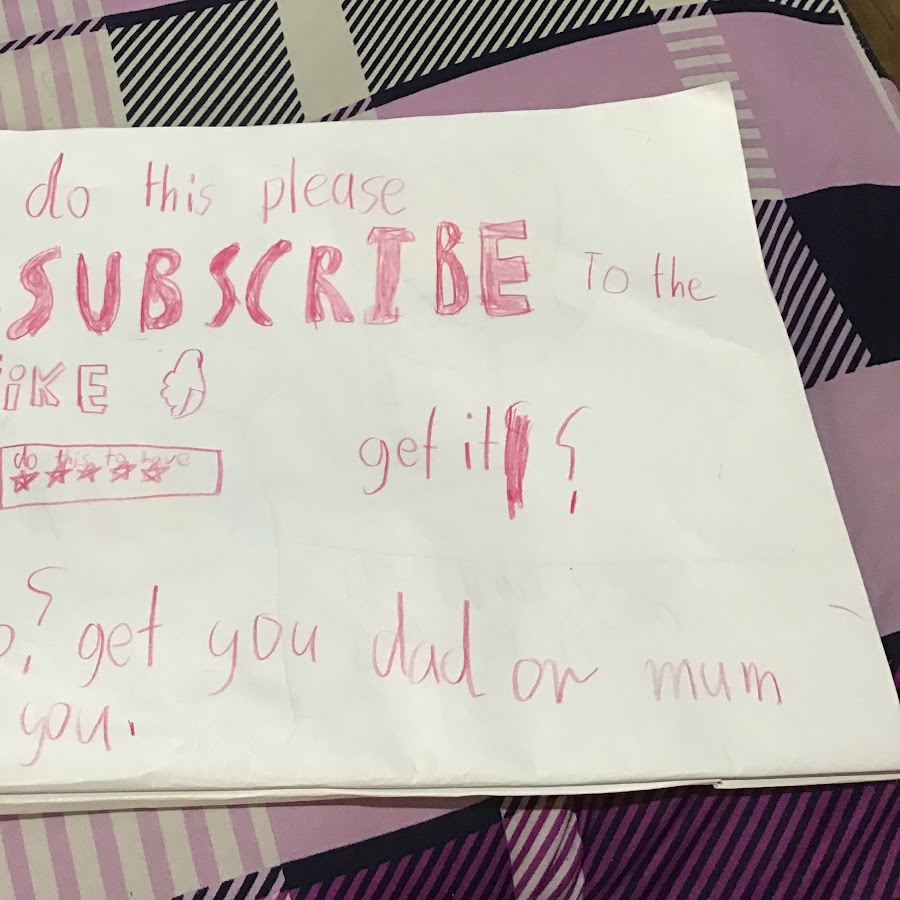 do this please
SUBSCRIBE To the
iKE
do this to have
get it ?
? get you dad or mum
you.